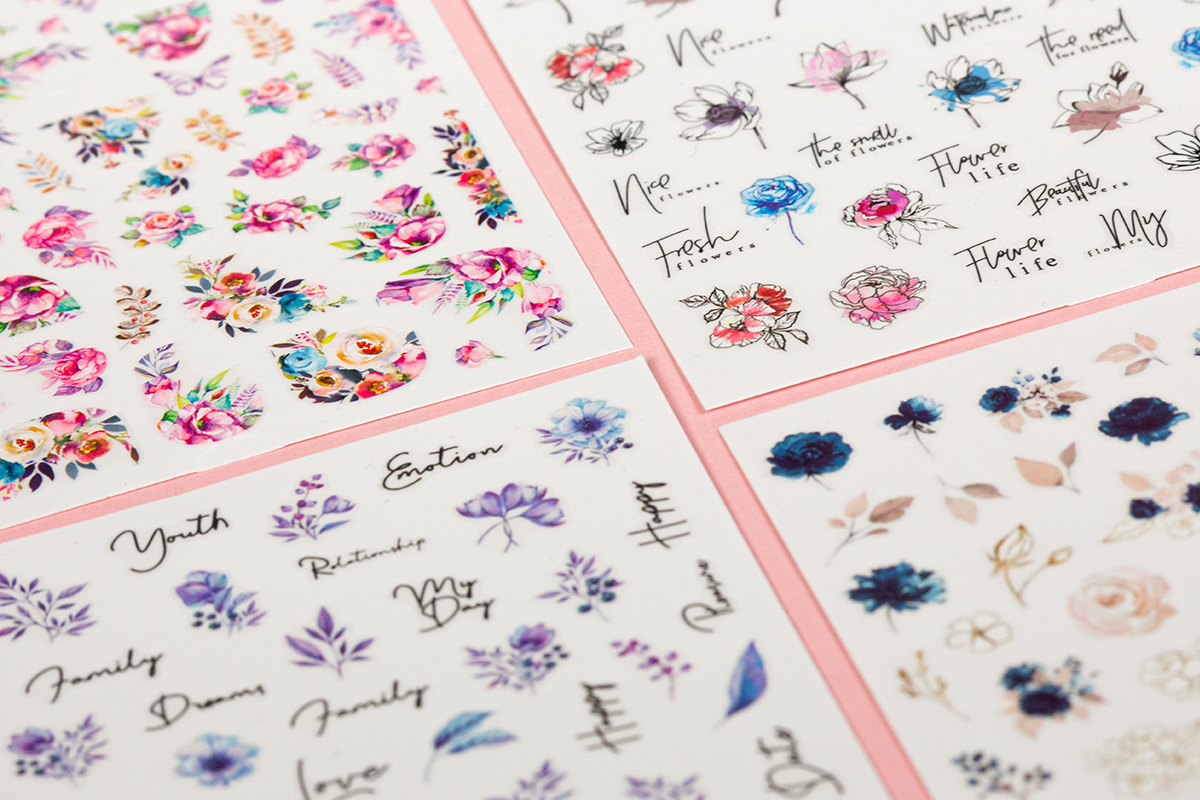 Nice
flowers
Watercolor
flowers
the need
for flowers
the smell
of flowers
Flower
life
Nice
flowers
Beautiful
flowers
Fresh
flowers
Flower
life
My
flowers
Emotion
Youth
Happy
Relationship
My
Day
Family
Dreams
Family
Happy
Love